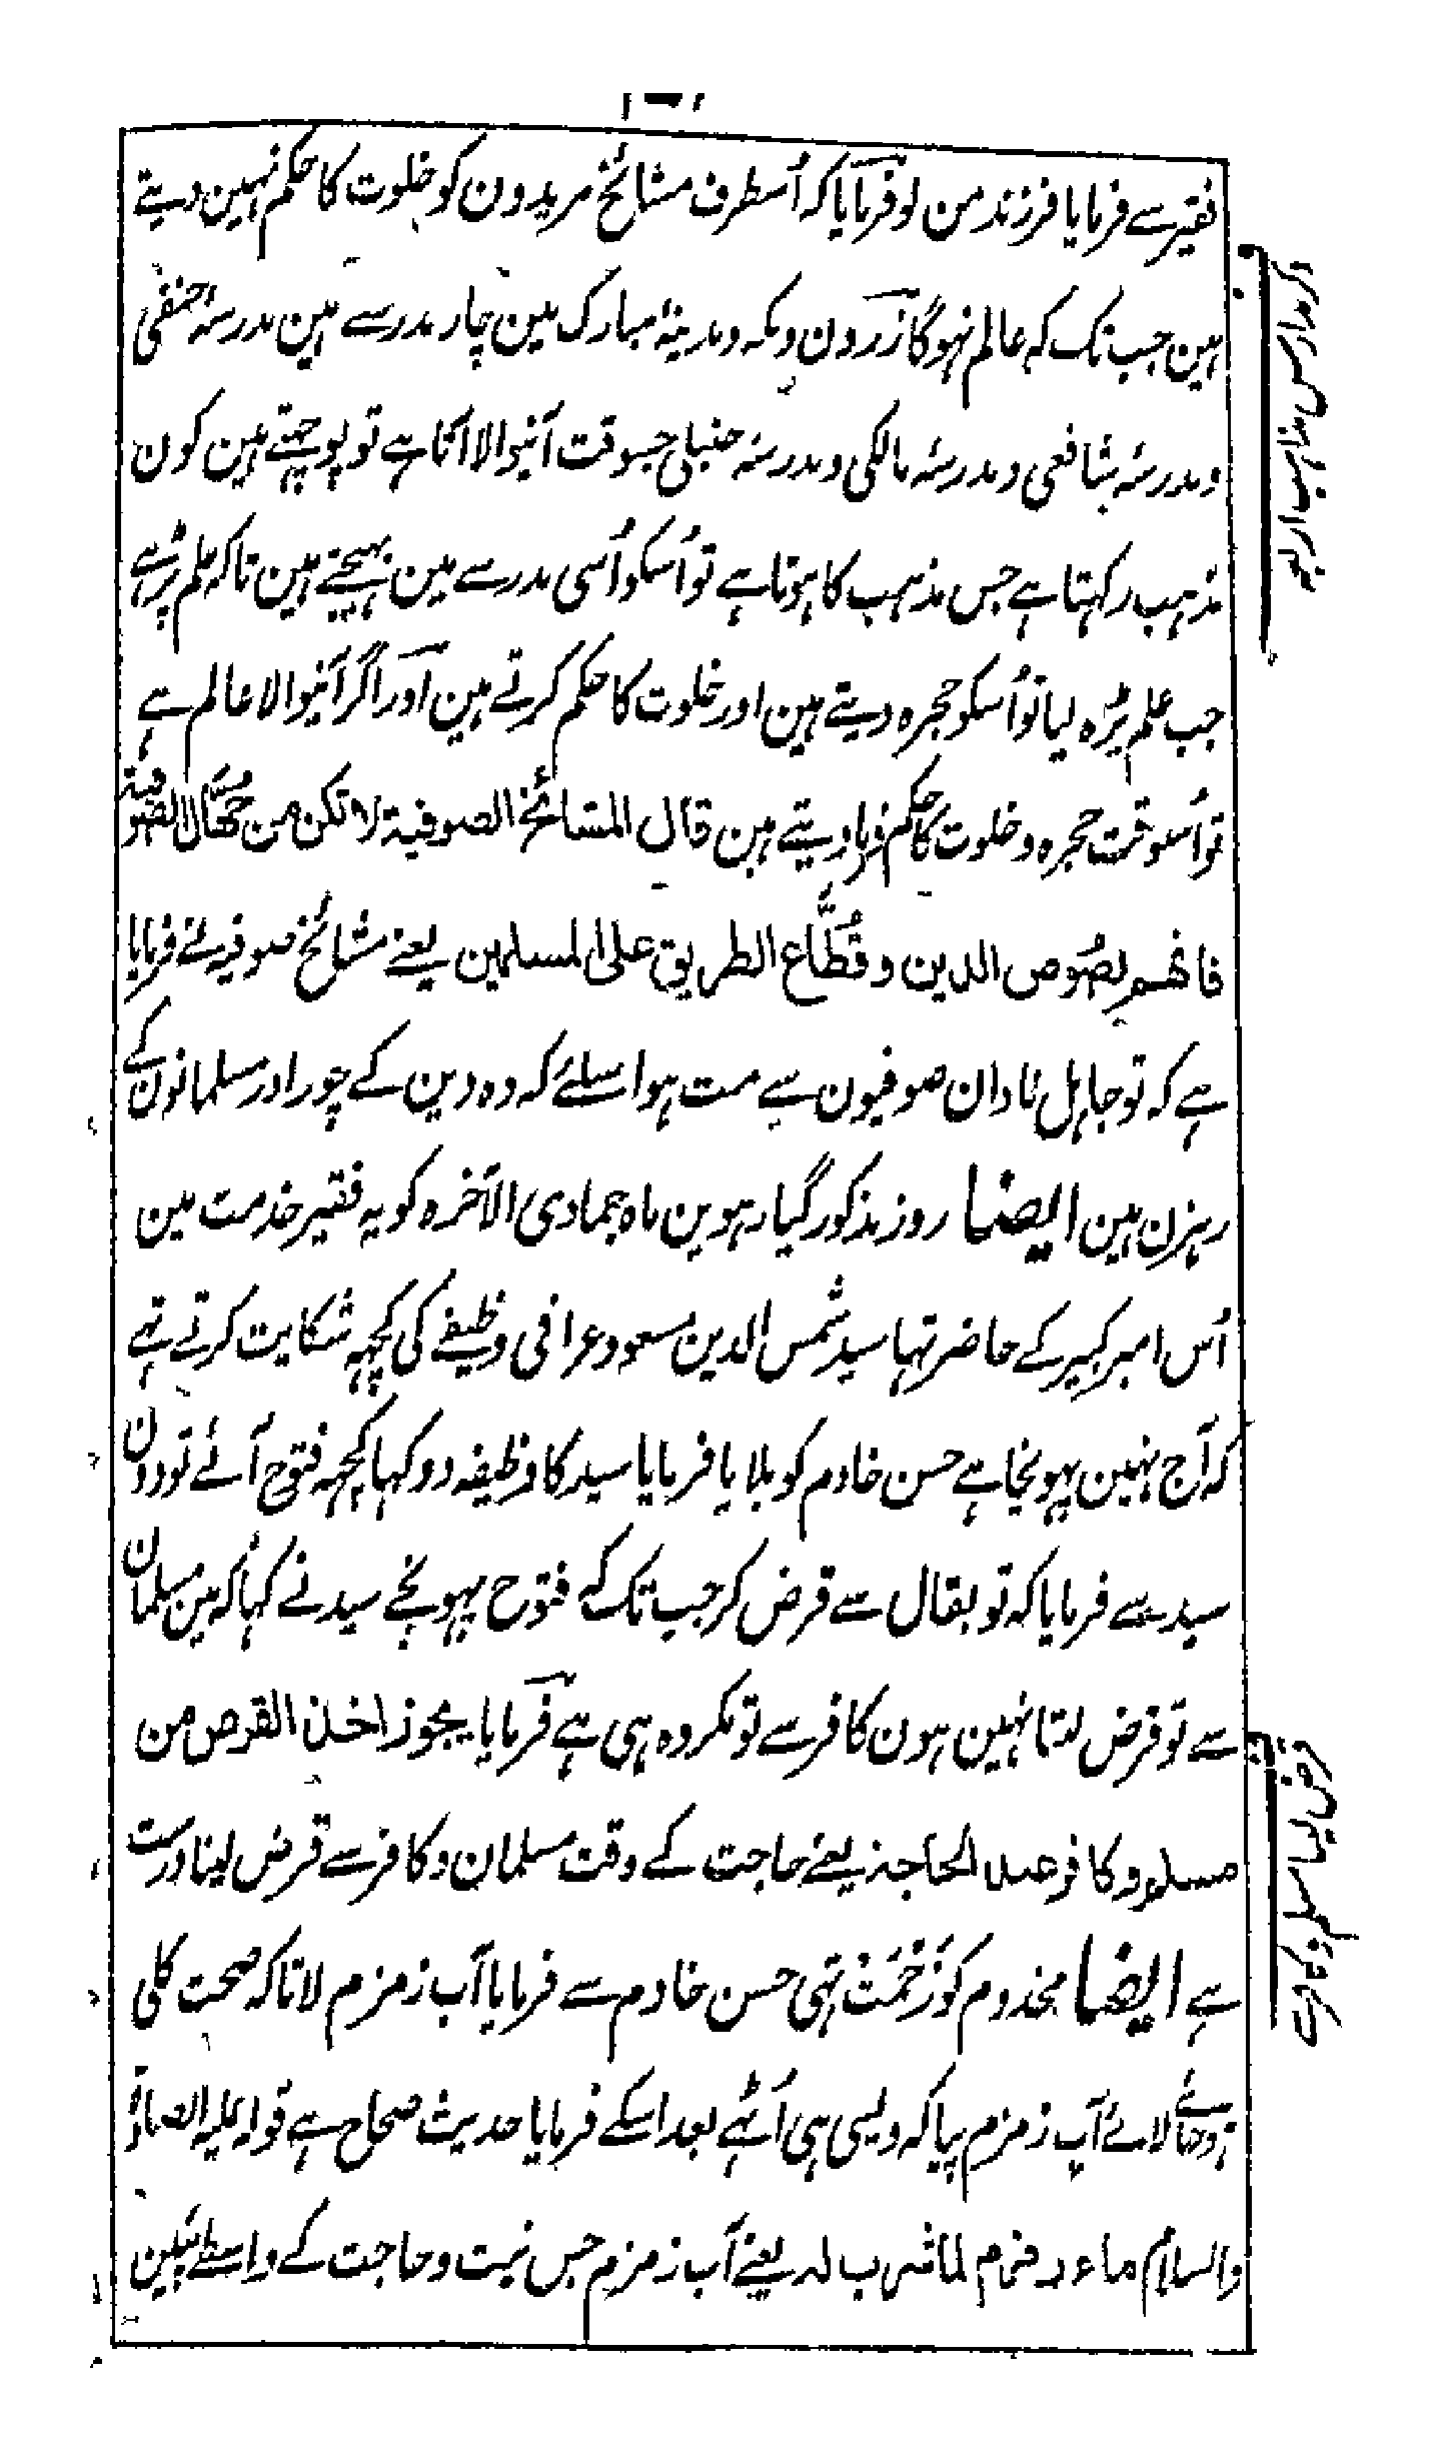 فقیر سے فرمایا فرزند من لو فرمایا کہ اُسطرف مشائخ مریدون کو خلوت کا حکم نہین دیتے
ہین جب تک کہ عالم نہوگا زرون ومکہ ومدینۂ مبارک مین چار مدرسے ہین مدرسۂ حنفی
ومدرسۂ شافعی ومدرسۂ مالکی ومدرسۂ حنبلی جسوقت آنیوالا آتا ہے تو پوچہتے ہین کون
مذہب رکہتا ہے جس مذہب کا ہوتا ہے تو اُسکو اُسی مدرسے مین بہیجتے ہین تاکہ علم پڑہے
جب علم پڑہ لیا تو اُسکو حجرہ دیتے ہین اور خلوت کا حکم کرتے ہین اور اگر آنیوالا عالم ہے
تو اُسوقت حجرہ وخلوت کا حکم فرما دیتے ہین قال المشائخ الصوفیة لا تکن من جھال الصوفیة
فانھم لصوص الدین وقُطَّاع الطریق علی المسلمین یعنے مشائخ صوفیہ نے فرمایا
ہے کہ تو جاہل نادان صوفیون سے مت ہو اسلئے کہ وہ دین کے چور اور مسلمانون کے
رہزن ہین ایضا روز مذکور گیارہوین ماہ جمادی الآخرہ کو یہ فقیر خدمت مین
اُس امیر کبیر کے حاضر تہا سید شمس الدین مسعود عراقی وظیفے کی کچہہ شکایت کرتے تہے
کہ آج نہین پہونچا ہے حسن خادم کو بلایا فرمایا سید کا وظیفہ دو کہا کچہہ فتوح آئے تو دون
سید سے فرمایا کہ تو بقال سے قرض کر جب تک کہ فتوح پہونچے سید نے کہا کہ مین مسلمان
سے تو قرض لیتا نہین ہون کافر سے تو مکروہ ہی ہے فرمایا یجوز اخذ القرض من
مسلم وکافر عند الحاجة یعنے حاجت کے وقت مسلمان وکافر سے قرض لینا درست
ہے ایضا مخدوم کو زحمت تہی حسن خادم سے فرمایا آب زمزم لا تاکہ صحت کلی
ہوجائے لائے آب زمزم پیا کہ ویسی ہی اُٹہے بعد اسکے فرمایا حدیث صحاح ہے قولہ علیہ الصلوٰة
والسلام ماء زمزم لما شرب لہ یعنے آب زمزم جس نیت وحاجت کے واسطے پیین
ذکر مدارس مذاہب اربعہ
قرض لینا مسلم وکافر سے